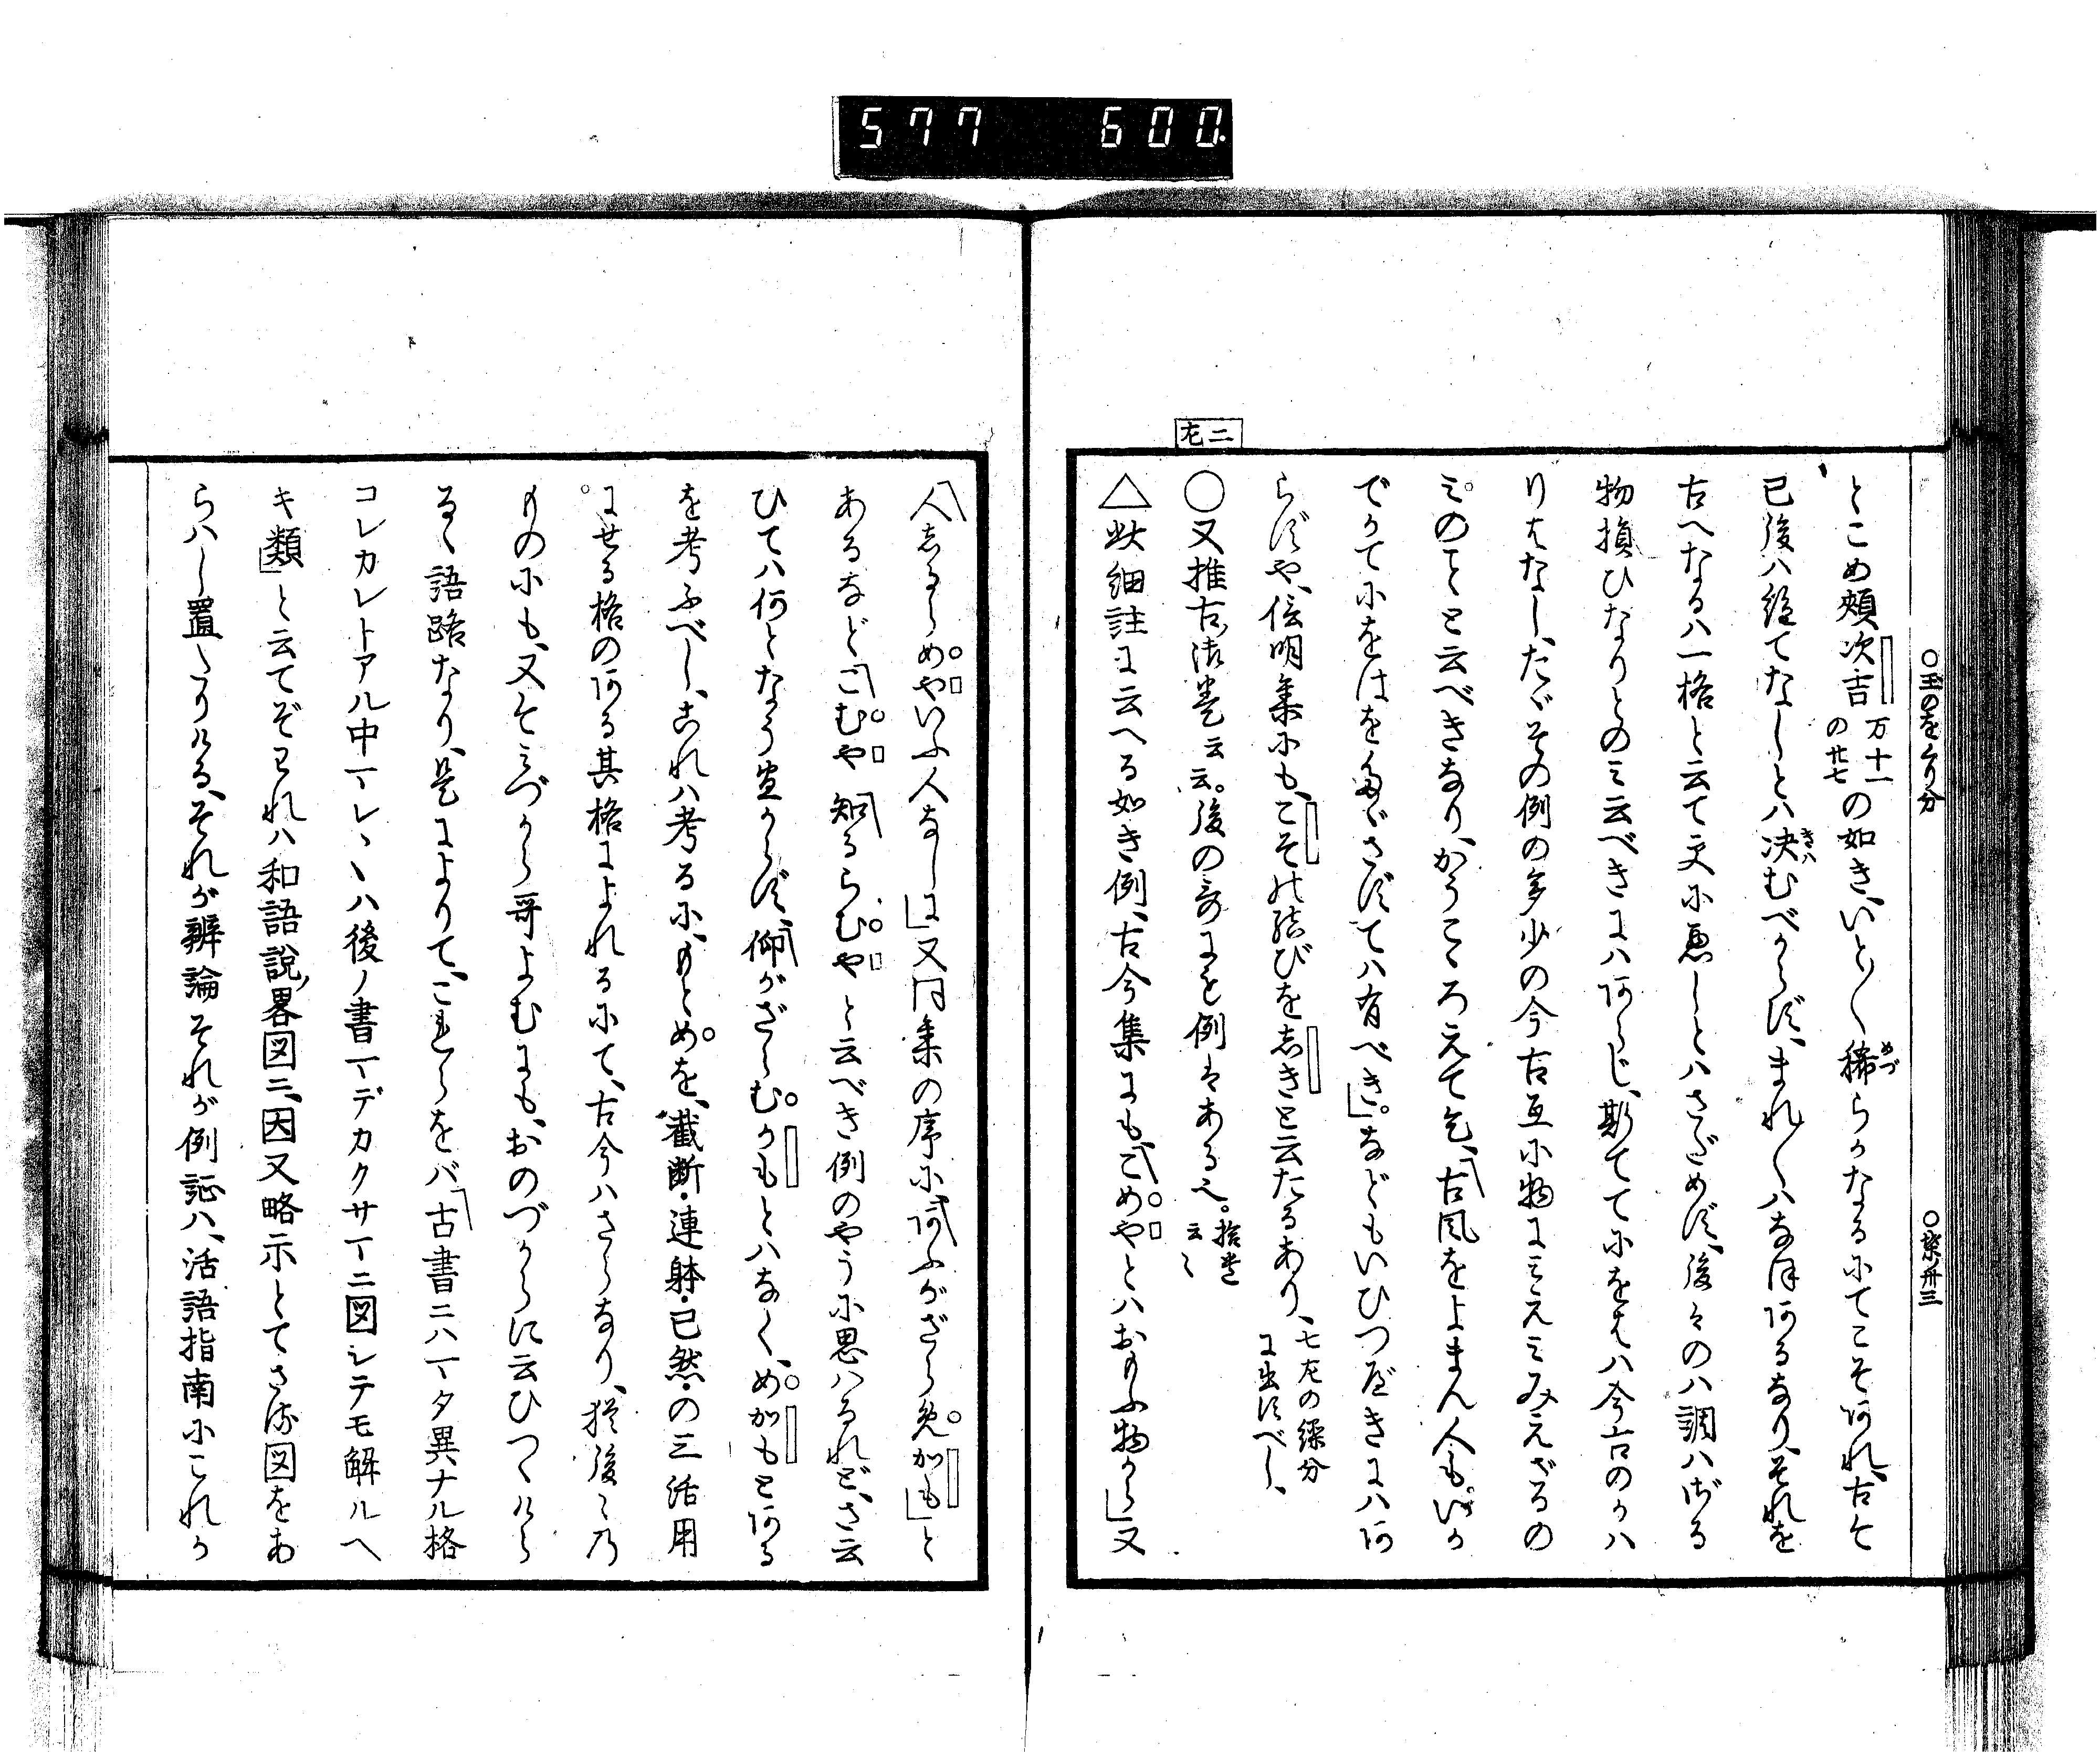 577 600.
○玉のをくり分 ○緊ノ卅三
とこめ頬次吉 万十一の廿七 の如き、いと〳〵稀らかなるにてこそあれ、古そ
已後ハ絶てなしとハ决むべからず、まれ〳〵ハなほあるなり、それを
古へなるハ一格と云て文に悪しとハさだめず、後々のハ調ハざる
物損ひなりとのミ云べきにハあらじ、斯ててにをはハ今古のかハ
りはなし、たゞその例の多少の今古互に物にミえミみえざるの
ミのことと云べきなり、かうこころえて乞、古風をよまん人も。いか
でかてにをはをたゞさずてハ有べき」。などもいひつべきにハあ
らずや、信明集にも、こその結びを志きと云たるあり、七左の繰分に出すべし、
二左
○又推古御巻云云。後の哥にを例はあるへ。拾巻云々
△此細註に云へる如き例、古今集にも、こめやとハおもふ物から」又
人志るらめやいふ人なしに」又同集の序に、あふがざらめかも」と
あるなどこむや知るらむやと云べき例のやうに思ハるれど、さ云
ひてハ何となう宜からず、仰がざらむかもとハなく、めかもとある
を考ふべし、これハ考るに、もとめを、截断・連躰・已然・の三活用
にせる格のある其格によれるにて、古今ハさらなり、猶後々乃
ものにも、又そミづから哥よむにも、おのづからに云ひつけら
るゝ語路なり、是によりて、これらをバ「古書ニハ一タ異ナル格
コレカレトアル中ーレヽハ後ノ書ーデカクサーニ図シテモ解ルヘ
キ類」と云てぞわれハ和語説畧図ニ、因又略示とてさる図をあ
らハし置たりける、それが辨論それが例証ハ、活語指南にこれか